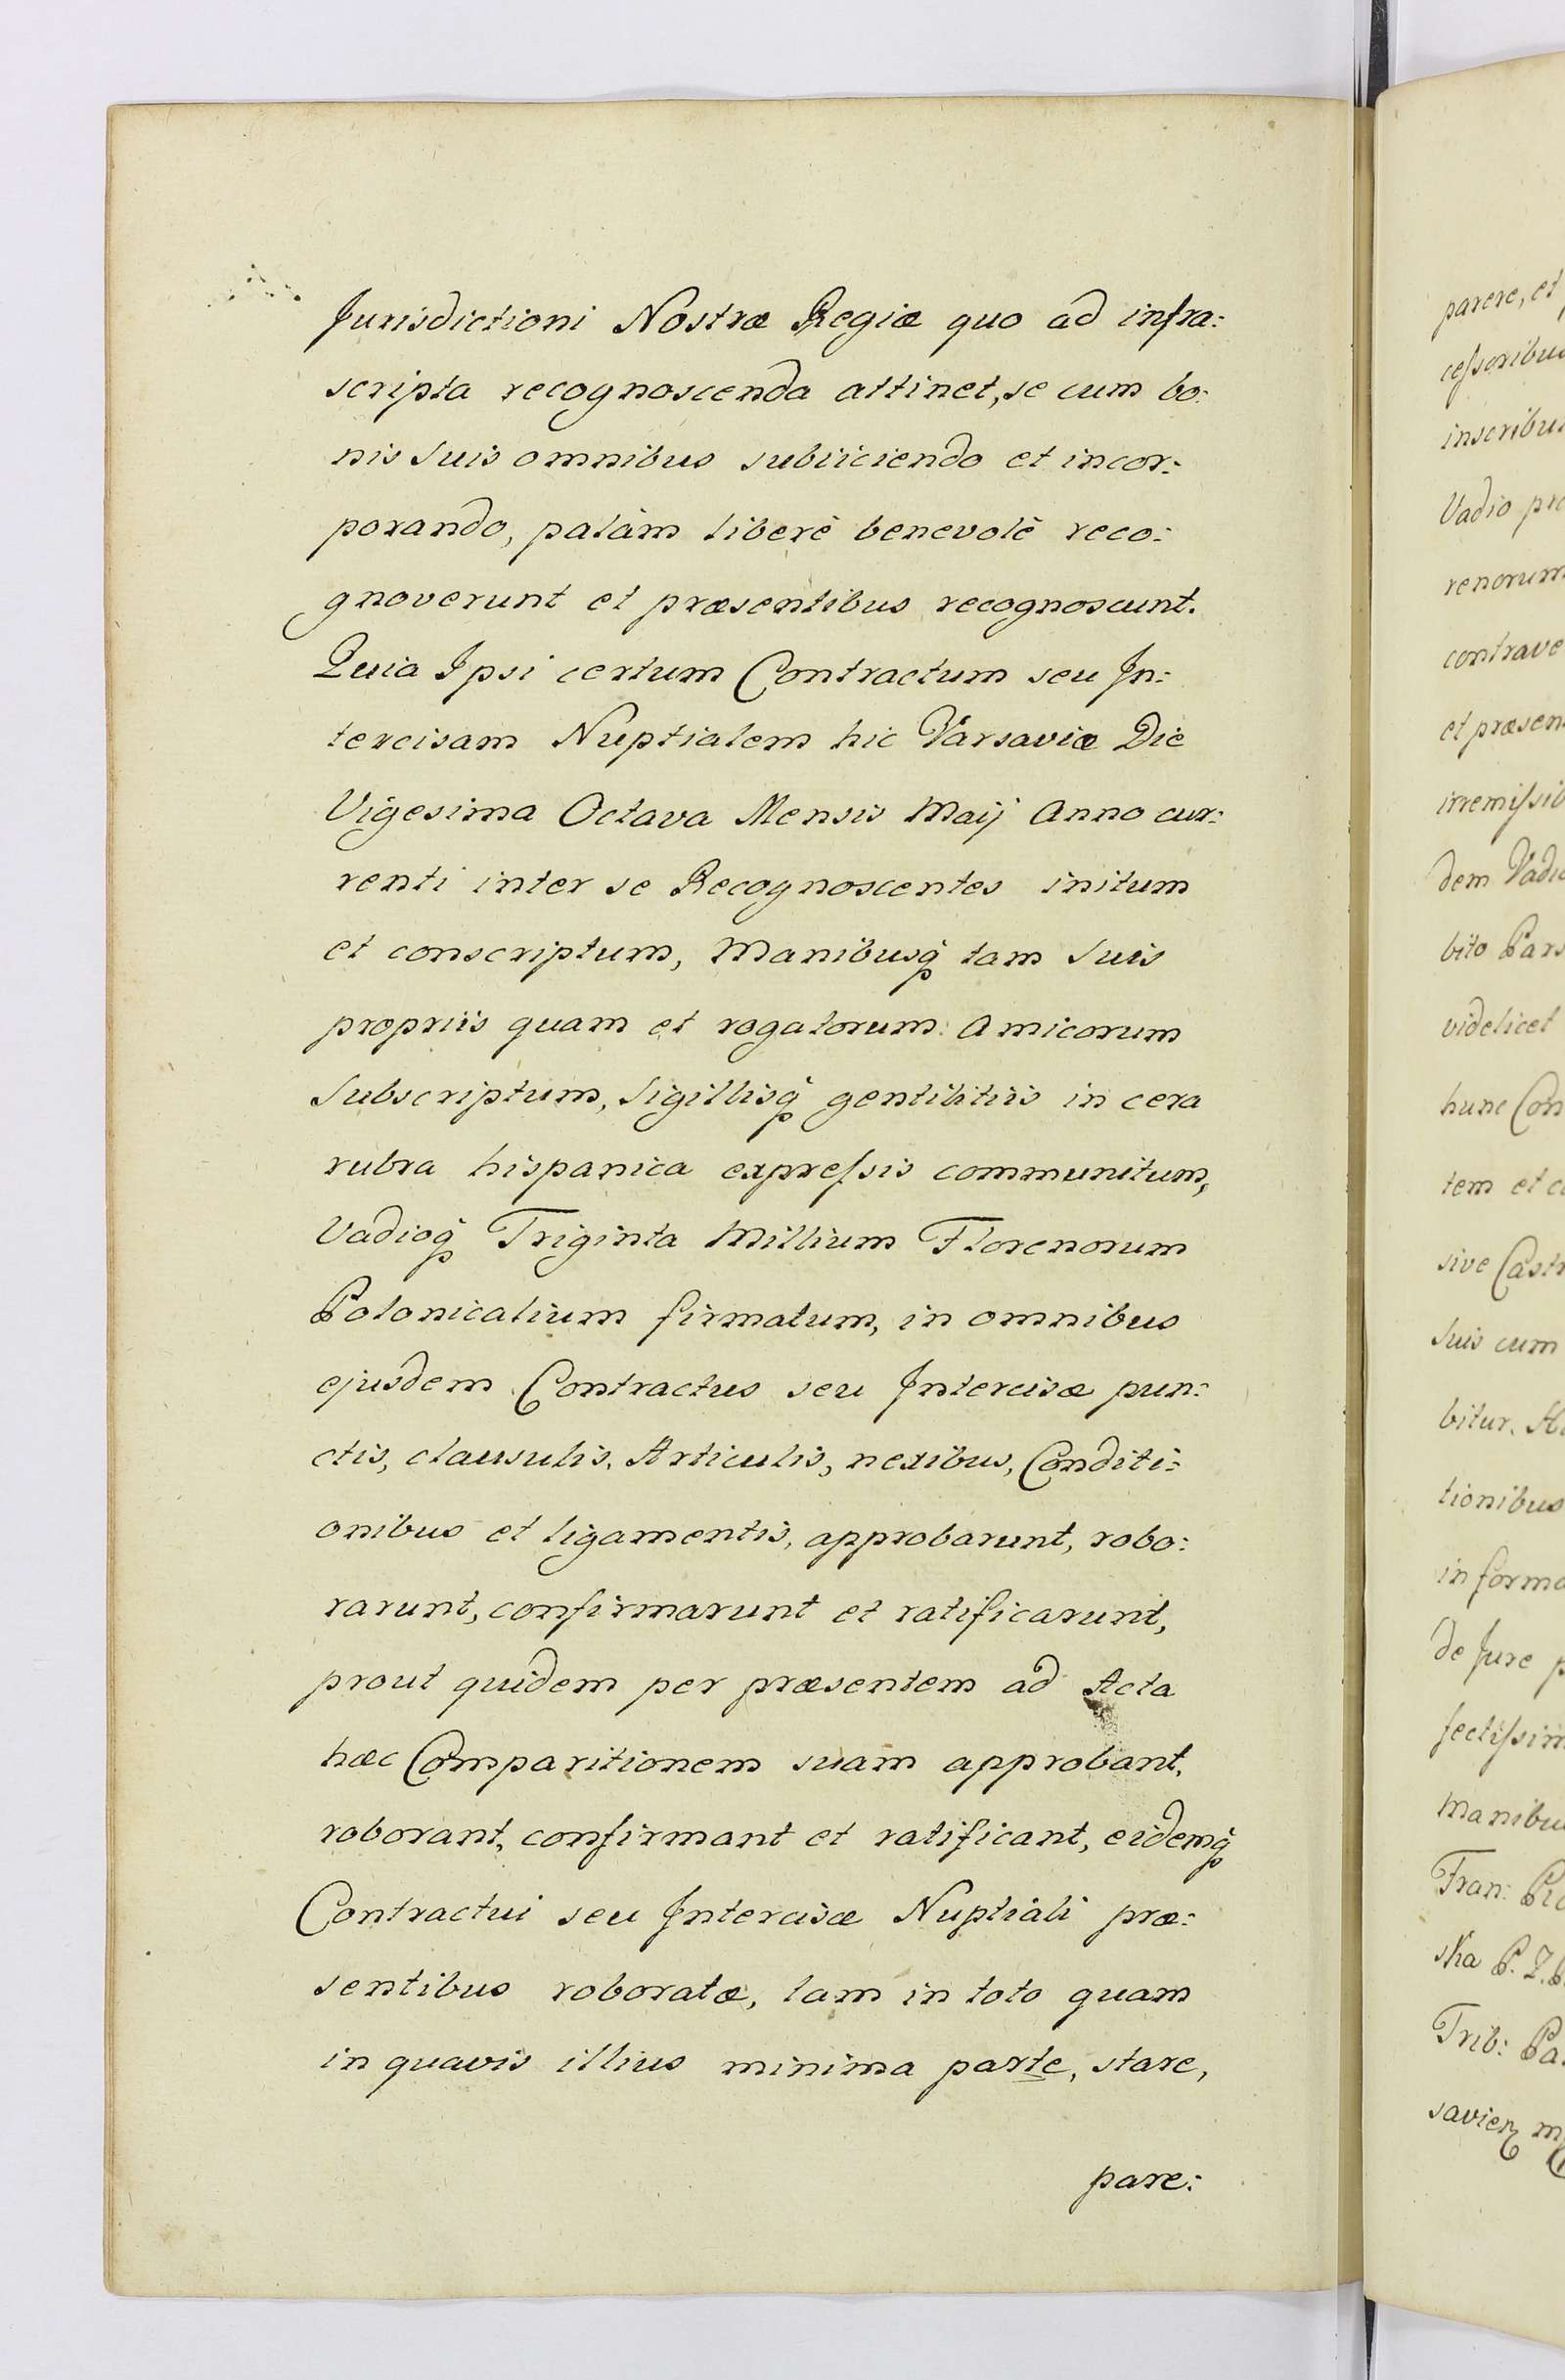 Jurisdictioni Nostræ Regiæ quo ad infra:
scripta recognoscenda attinet, se cum bo:
nis suis omnibus subiiciendo et incor:
porando, palàm liberè benevolè reco:
gnoverunt et præsentibus recognoscunt.
Quia Ipsi certum Contractum seu In:
tercisam Nuptialem hic Varsaviæ Die
Vigesima Octava Mensis Maij Anno cur:
renti inter se Recognoscentes initum
et conscriptum, Manibusq́ tam suis
propriis quam et rogatorum Amicorum
subscriptum, sigillisq́ gentilitiis in cera
rubra hispanica expreſsis communitum,
Vadioq́ Triginta Millium Florenorum
Polonicalium firmatum, in omnibus
ejusdem Contractus seu Intercisæ pun:
ctis, clausulis, Articulis, nexibus, Conditi:
onibus et ligamentis, approbarunt, robo:
rarunt, confirmarunt et ratificarunt,
prout quidem per præsentem ad Acta
hæc Comparitionem suam approbant,
roborant, confirmant et ratificant, eidemq́
Contractui seu Intercisæ Nuptiali præ:
sentibus roboratæ, tam in toto quam
in quavis illius minima parte, stare,
pare:
parere, et
ceſsoribus
inscribu
Vadio pro
renorum
contrave
et præsen
irremiſsib
dem Vadio
bito Pars
videlicet
hunc Con
tem et c
sive Castr
suis cum
bitur. A
tionibus
in forma
de Jure p
fectiſsim
Manibu
Fran: Pio
ska P. Z. P
Trib: Pa
savien m